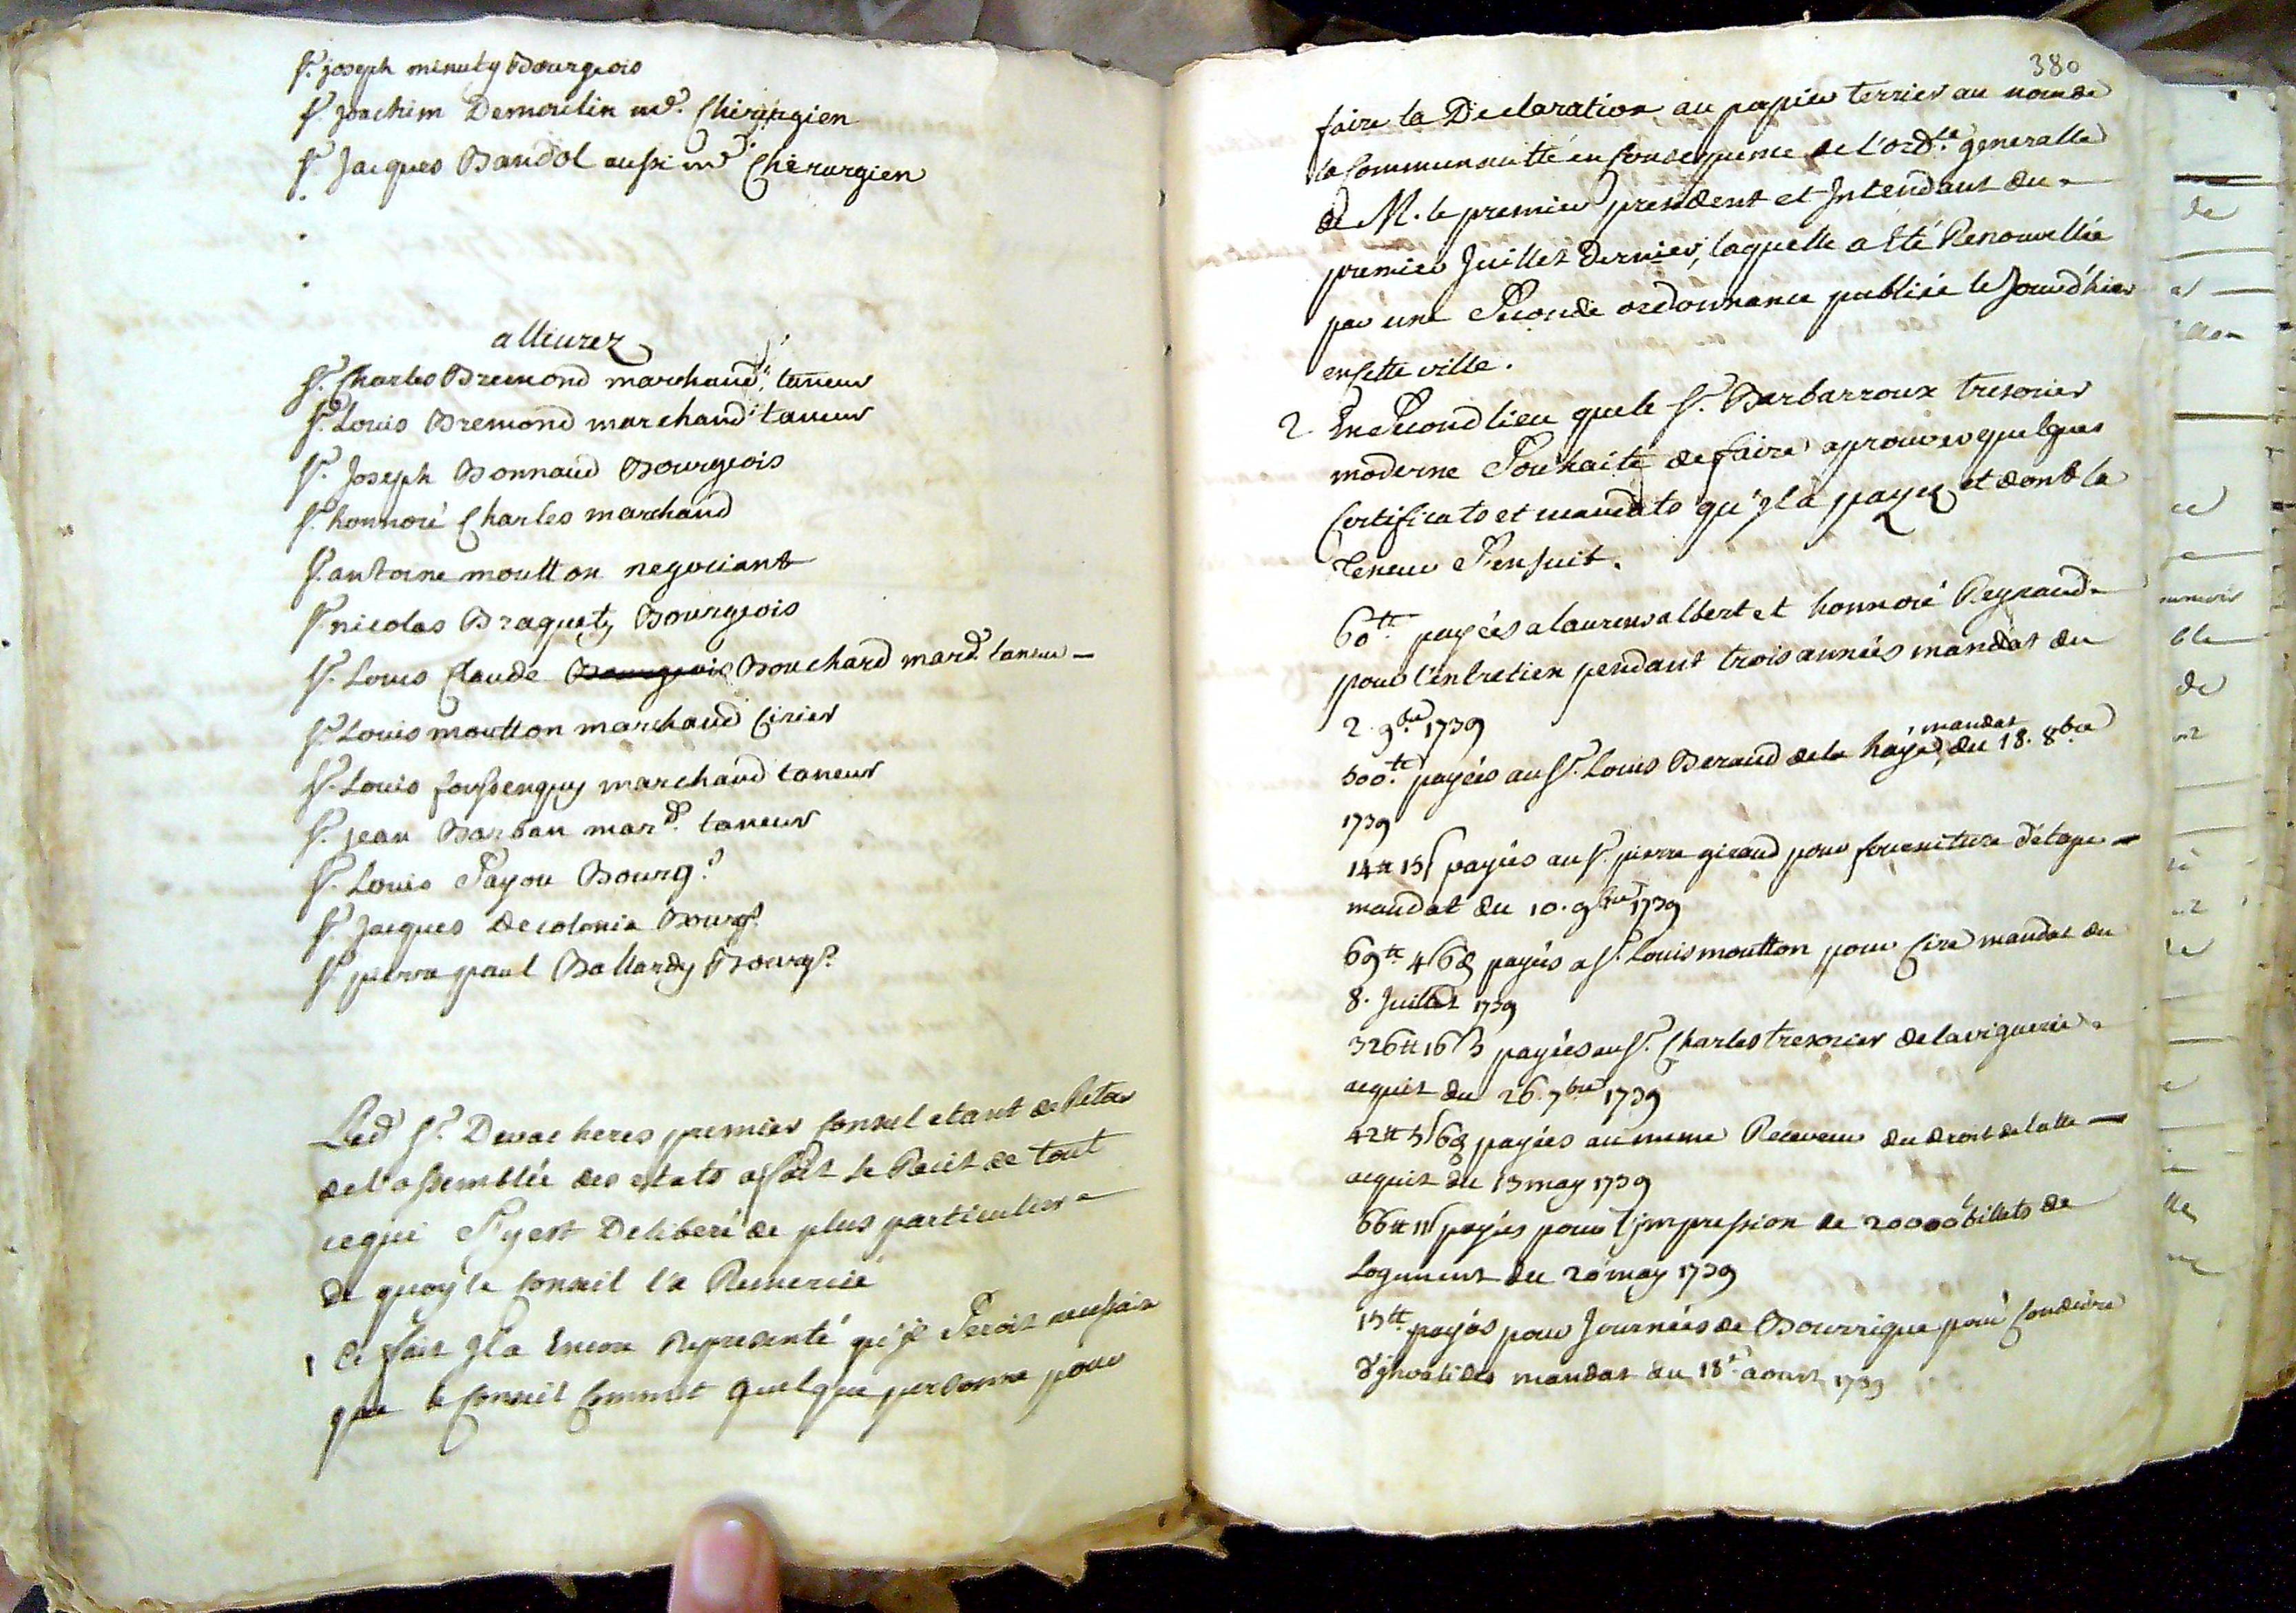 Sr. joseph minuty Bourgeois
Sr. Joachim Demoulin md. Chirurgien
Sr. Jacques Bandol aussi md Chirurgien
allivrez
Sr. Charles Bremond marchand taneur
Sr. Louis Bremond marchand taneur
Sr. Joseph Bonnaud Bourgeois
Sr. honnoré Charles marchand
Sr. antoine moutton negociant
Sr. nicolas Braquety Bourgeois
Sr. Louis Claude Bourgeois Bouchard mard. taneur
Sr. Louis moutton marchand Cirier
Sr. Louis foussenquy marchand taneur
Sr. jean Barban mard. taneur
Sr. Louis Payou Bourgs.
Sr. Jacques Decolonia Bourgs.
Sr. pierre paul Ballardy Bourgs.
Led. Sr. Devacheres premier Consul etant de Retour
de l'assemblée des etats a fait le Recit de tout
ce qui s'y est Deliberé de plus particulier
de quoy le Conseil l'a Remercié
1 Ce fait Jl a Encore Representé qu'jl seroit necessaire
que le Conseil Commit quelque personne pour
380
faire la Declaration au papier terrier au nom de
la Communautté en Consequence de l'ordce. generalle
de M. le premier president et Jntendant du
premier Juillet Dernier, laquelle a été Renouvellée
par une seconde ordonnance publiée le Jourd'hier
en Cette ville.
2 En second lieu que le Sr. Barbarroux tresorier
moderne souhaite de faire aprouver quelques
Certificats et mandats qu'jl a payez et dont la
teneur s'ensuit.
60 tt payées a laurens albert et honnoré Reynaud
pour l'entretien pendant trois années mandat du
2. 9bre 1739
300 tt payées au Sr. Louis Beraud de la haye, mandat du 18. 8bre
1739
14 tt 15 s payées au Sr. pierre giraud pour fourniture d'etape
mandat du 10. 9bre 1739
69 tt 4 s 6 d payées a Sr. Louis moutton pour Cire mandat du
8. Juillet 1739
326 tt 16 s 3 payées au Sr. Charles tresorier de la viguerie
acquit du 26. 7bre 1739
42 tt 5 s 6 d payées au meme Receveur du droit de latte
acquit du 13 may 1739
66 tt 11 s payées pour l'jmpression de 20000 billets de
Logement du 20 may 1739
15 tt payés pour Journées de Bourrique pour Conduire
d'jnvalides mandat du 18e. aoust 1739
de
ble
de